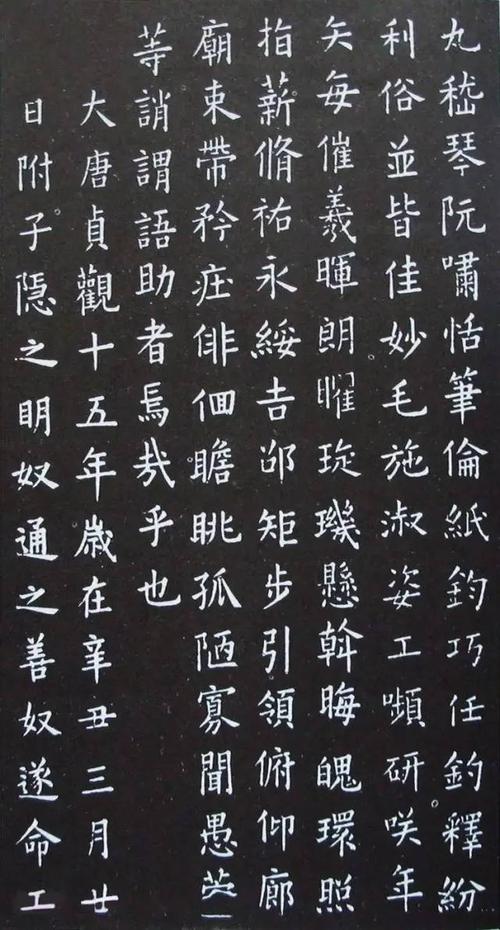 丸嵇琴阮嘯恬筆倫紙鈞巧任釣釋紛
利俗並皆佳妙毛施淑姿工嚬研咲年
矢每催羲暉朗曜琁璣懸斡晦魄環照
指薪脩祐永綏吉邵矩步引領俯仰廊
廟束帶矜庄俳佪瞻眺孤陋寡聞愚
等誚謂語助者焉哉乎也
大唐貞觀十五年歲在辛丑三月廿
日附子隱之明奴通之善奴遂命工